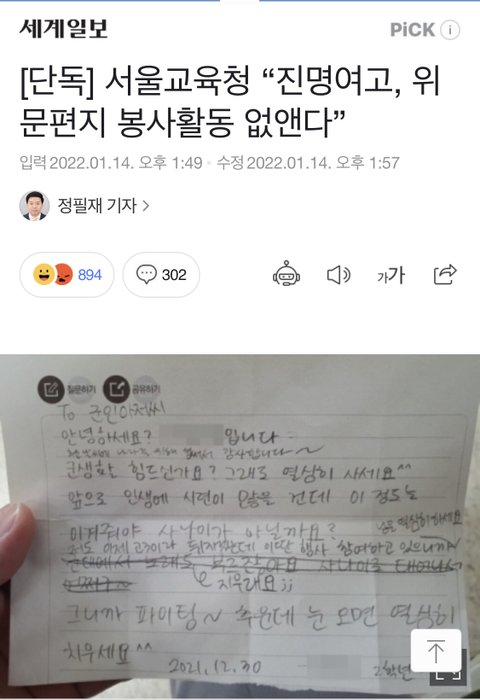 세계일보
PiCK
[단독] 서울교육청 “진명여고, 위
문편지 봉사활동 없앤다”
입력 2022.01.14. 오후 1:49 · 수정 2022.01.14. 오후 1:57
정필재 기자 >
894
302
가가
질문하기 공유하기
To 군인아저씨
안녕하세요? 입니다
군생활 힘드신가요? 그래도 열심히 사세요^^
앞으로 인생에 시련이 많을 건데 이 정도는
이겨줘야 사나이가 아닐까요?
저도 이제 고3이라 뒤지겠는데 이딴 행사 참여하고 있으니까
지우래요;;
그니까 파이팅~ 추운데 눈 오면 열심히
치우세요^^
2021.12.30
2학년